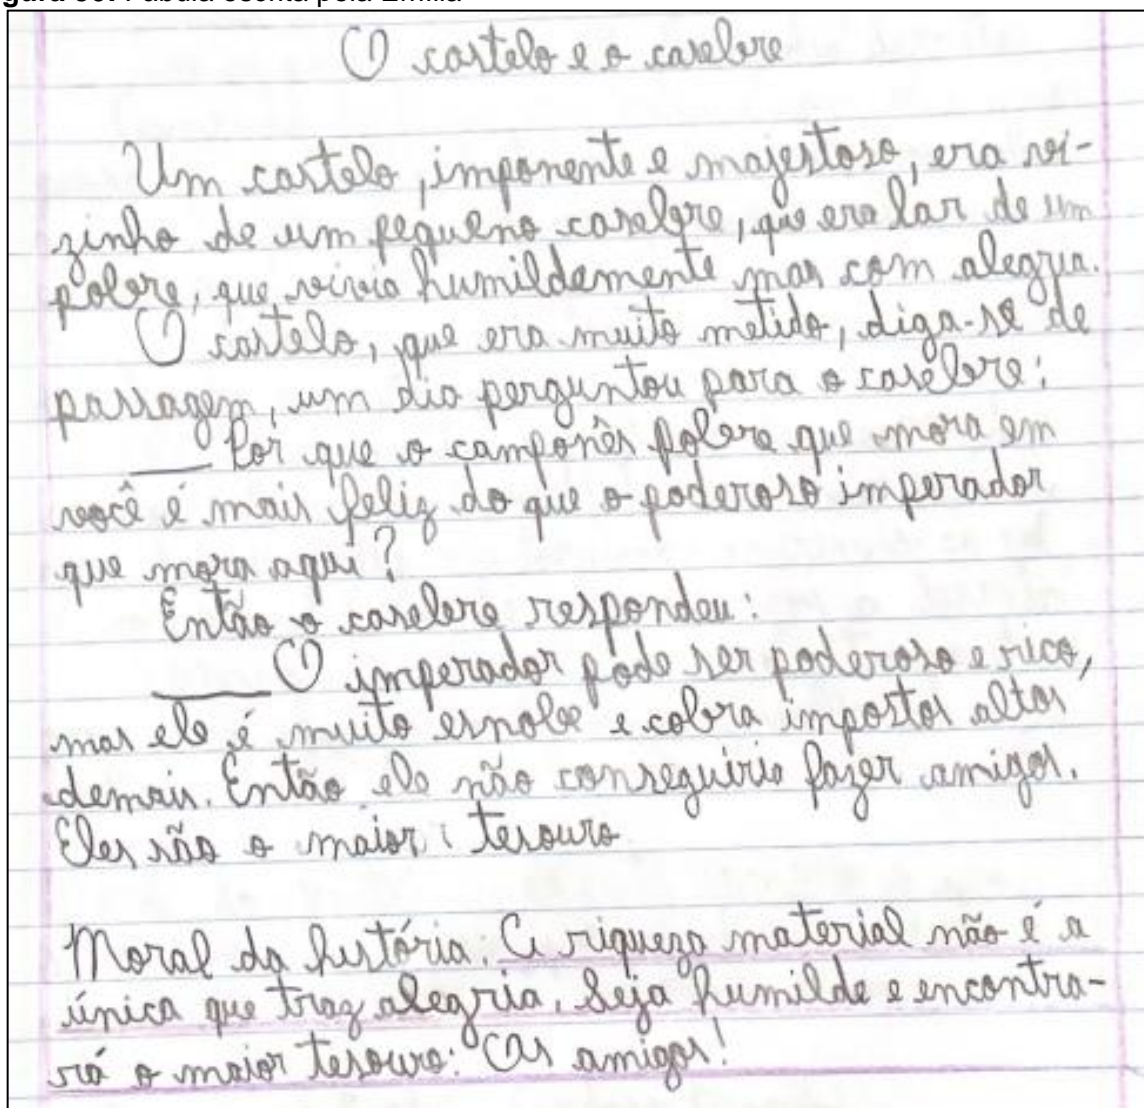 Fábula escrita pela Emília
O castelo e o casebre
Um castelo, imponente e majestoso, era vi-
zinho de um pequeno casebre, que era lar de um
pobre, que vivia humildemente mas com alegria.
O castelo, que era muito metido, diga-se de
passagem, um dia perguntou para o casebre:
— Por que o camponês pobre que mora em
você é mais feliz do que o poderoso imperador
que mora aqui?
Então o casebre respondeu:
— O imperador pode ser poderoso e rico,
mas ele é muito esnobe e cobra impostos altos
demais. Então ele não conseguiria fazer amigos.
Eles são o maior tesouro
Moral da história: A riqueza material não é a
única que traz alegria. Seja humilde e encontra-
rá o maior tesouro: Os amigos!